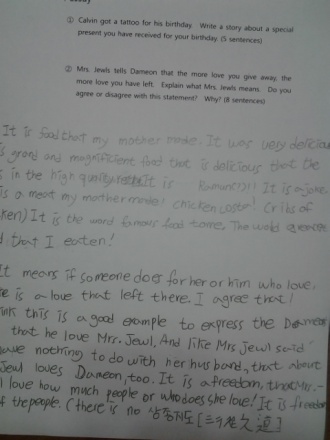 ① Calvin got a tattoo for his birthday. Write a story about a special
present you have received for your birthday. (5 sentences)
② Mrs. Jewls tells Dameon that the more love you give away, the
more love you have left. Explain what Mrs. Jewls means. Do you
agree or disagree with this statement? Why? (8 sentences)
It is food that my mother made. It was very delicious
is grand and magnificient food that is delicious that the
s in the high quality It is It is a joke.
is a meat my mother made! chicken (ribs of
ken) It is the word famous food to me. The wold greates
d that I eaten!
It means if someone does for her or him who love,
re is a love that left there. I agree that!
ink this is a good example to express the Dameon
that he love Mrs. Jewl. And like Mrs Jewl said
have nothing to do with her husband, that about
Jewl loves Dameon, too. It is a freedom, that Mr.-
l love how much people or who does she love! It is freedom
f the people. (there is no